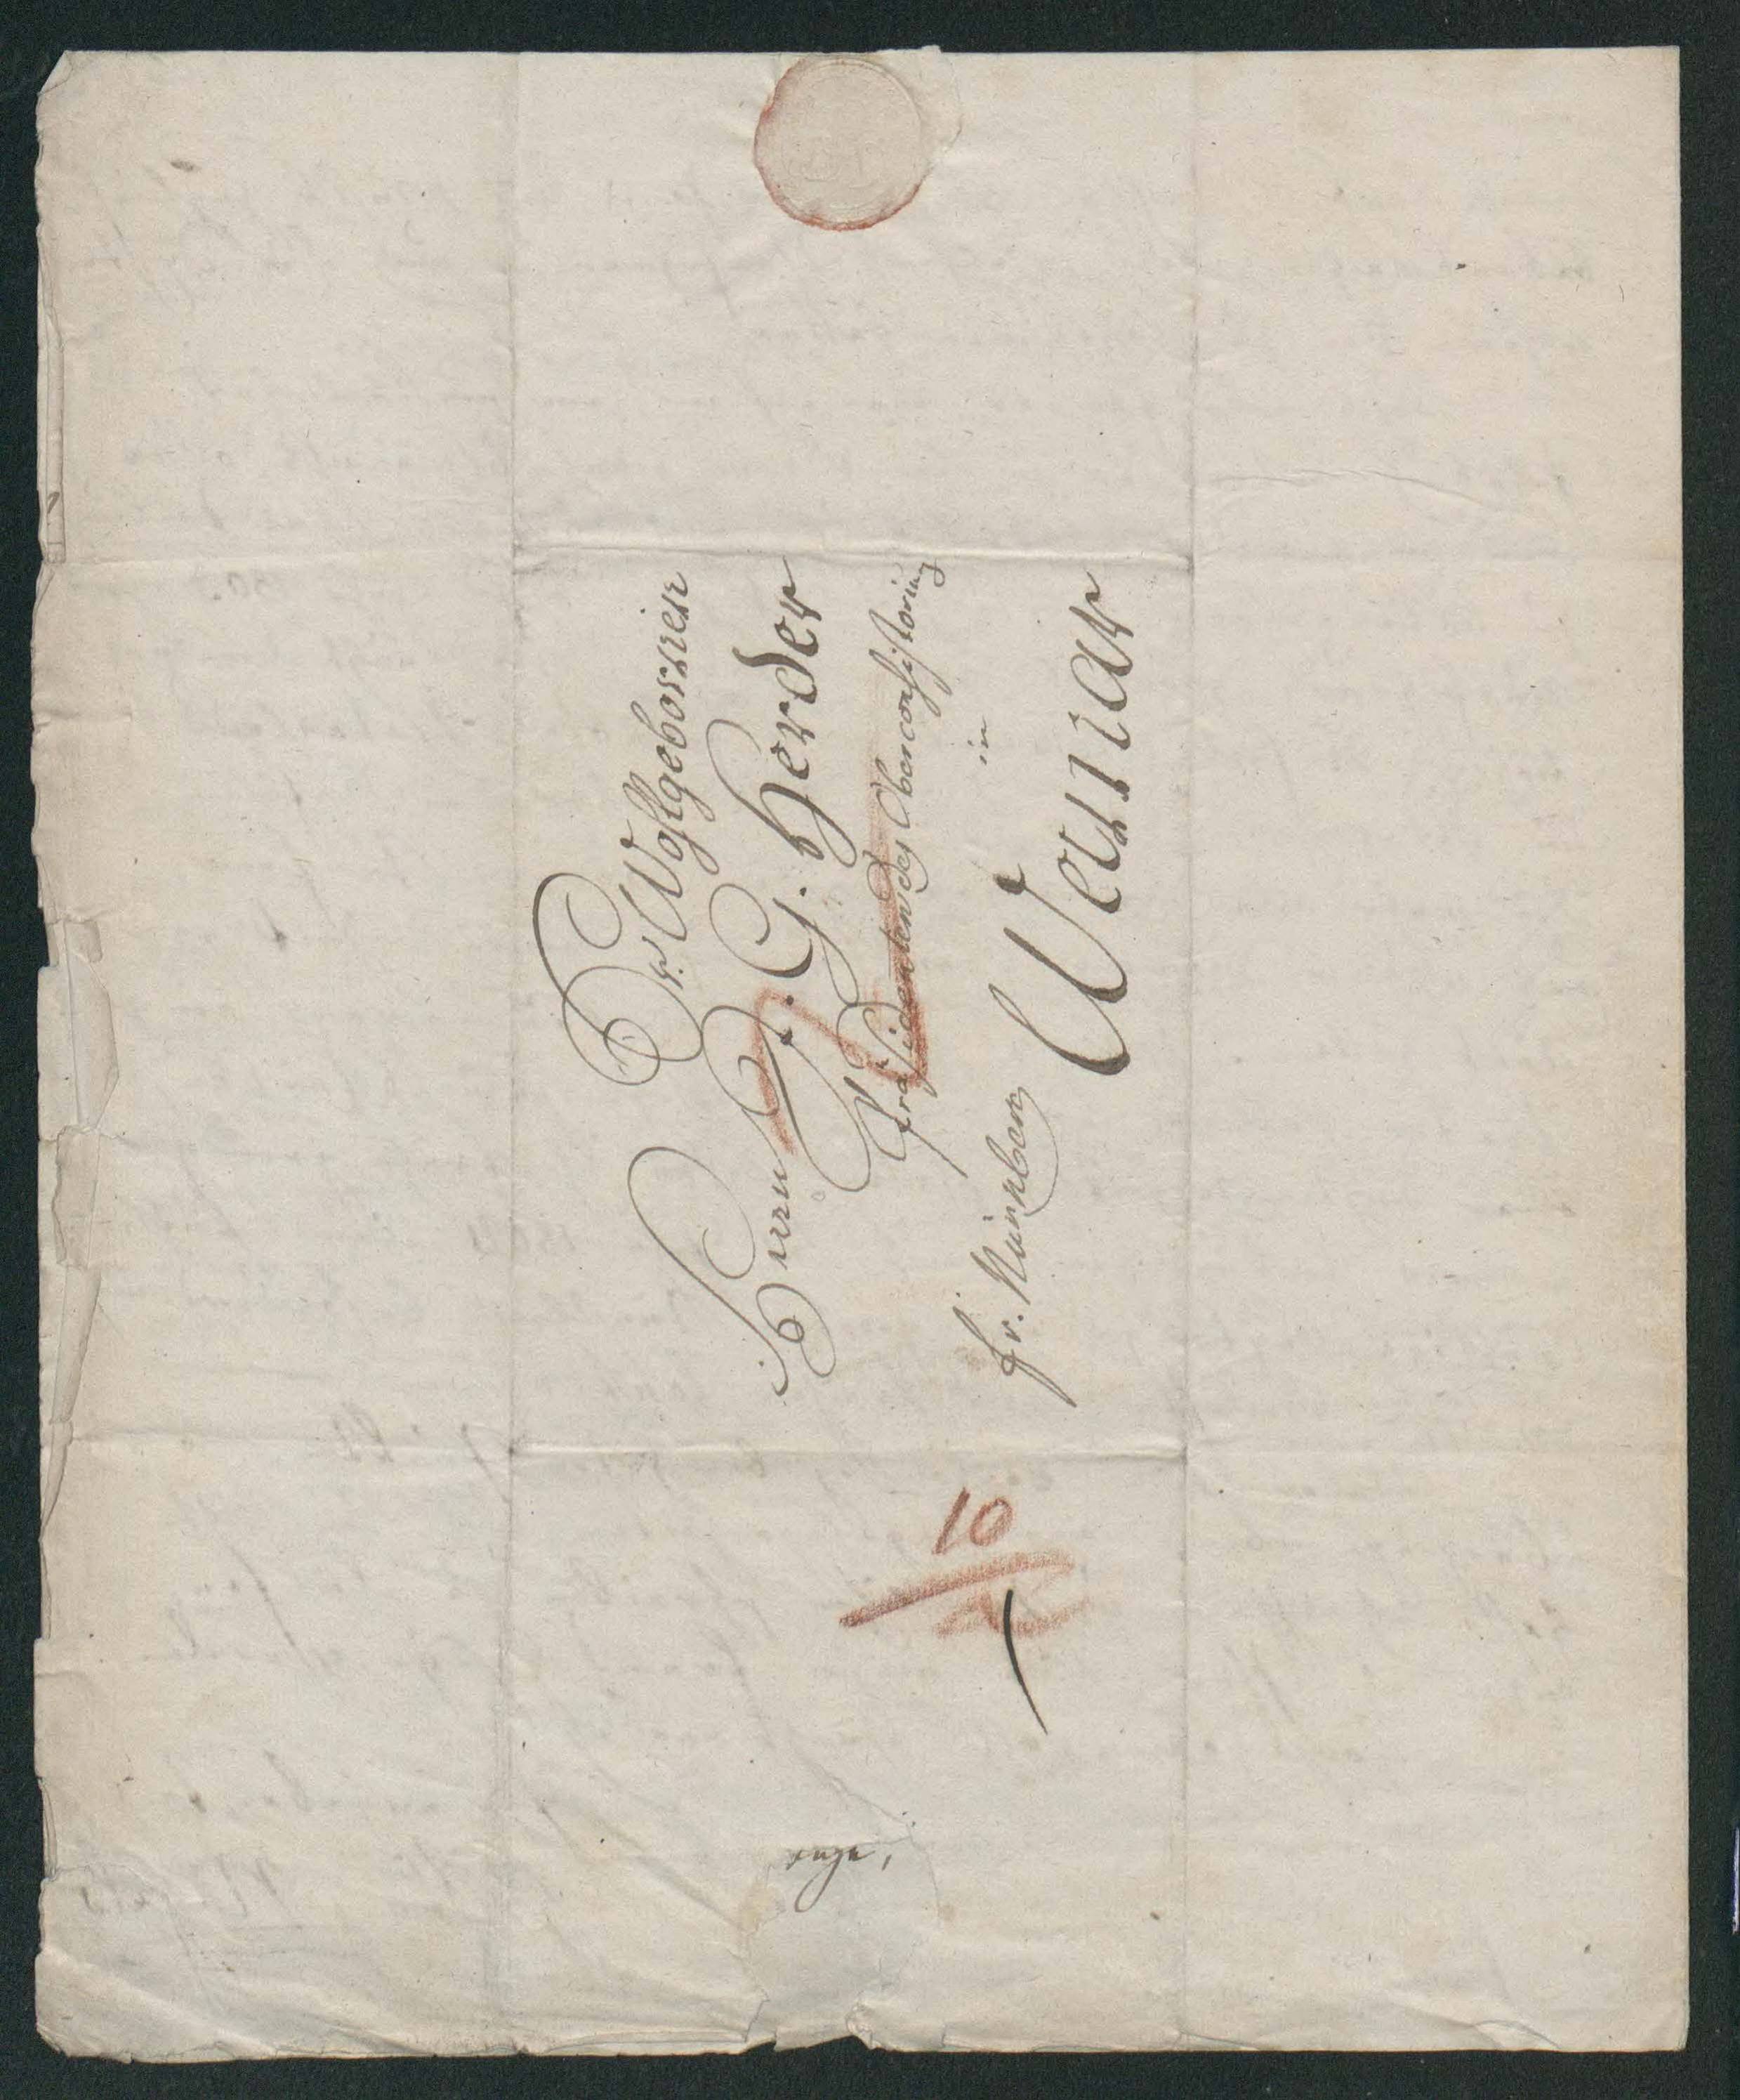 Sr. Wohlgebohren
Herrn J. G. Herder
Präsidenten des Oberconsistoriums
in
Weimar
fr. Nürnberg
10